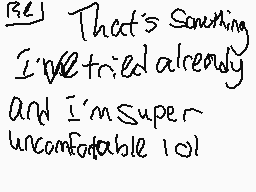 Re] That's Something
I've tried already
and I'm super
uncomfotable lol